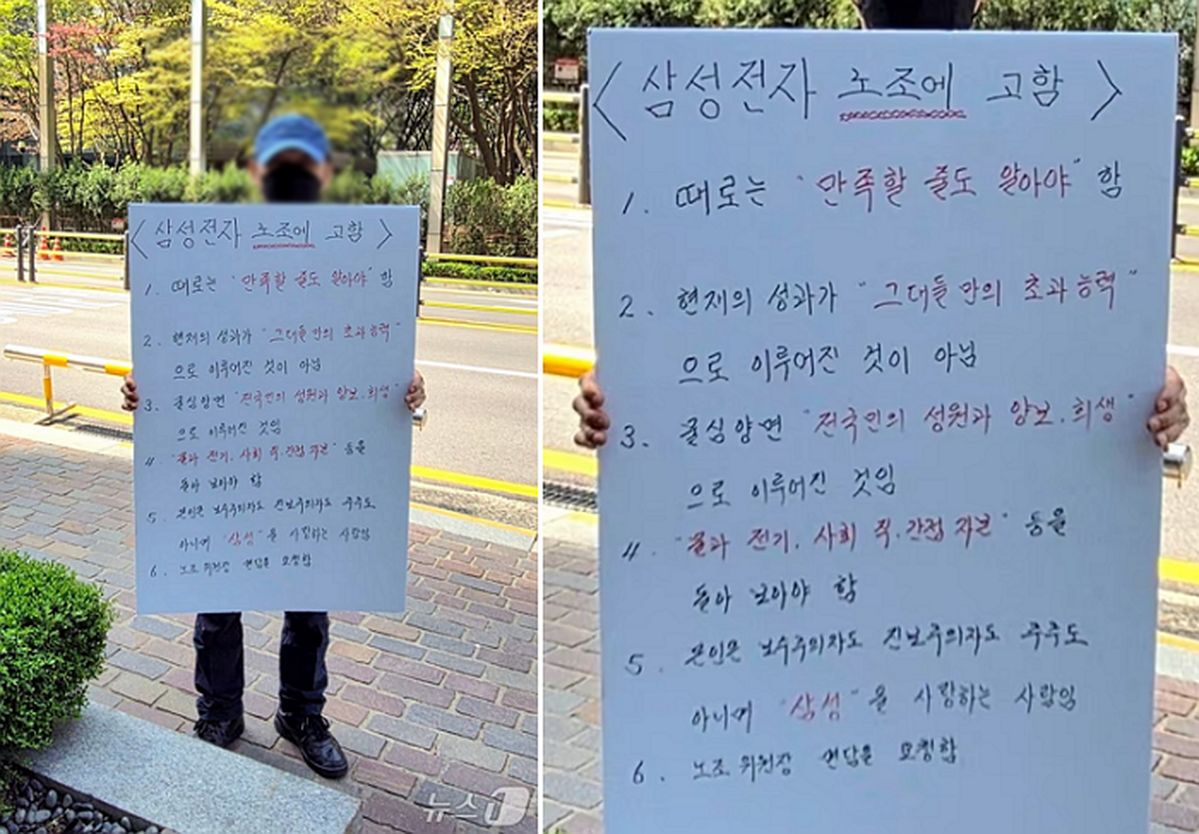 < 삼성전자 노조에 고함 >
1. 때로는 "만족할 줄도 알아야" 함
2. 현재의 성과가 "그대들만의 초과능력"
으로 이루어진 것이 아님
3. 물심양면 "전국민의 성원과 양보.희생"
으로 이루어진 것임
4. "물과 전기, 사회 직.간접 자본" 등을
돌아 보아야 함
5. 본인은 보수주의자도 진보주의자도 주주도
아니며 "삼성"을 사랑하는 사람임
6. 노조위원장 면담을 요청함
< 삼성전자 노조에 고함 >
1. 때로는 "만족할 줄도 알아야" 함
2. 현재의 성과가 "그대들만의 초과능력"
으로 이루어진 것이 아님
3. 물심양면 "전국민의 성원과 양보.희생"
으로 이루어진 것임
4. "물과 전기, 사회 직.간접 자본" 등을
돌아 보아야 함
5. 본인은 보수주의자도 진보주의자도 주주도
아니며 "삼성"을 사랑하는 사람임
6. 노조위원장 면담을 요청함
뉴스1